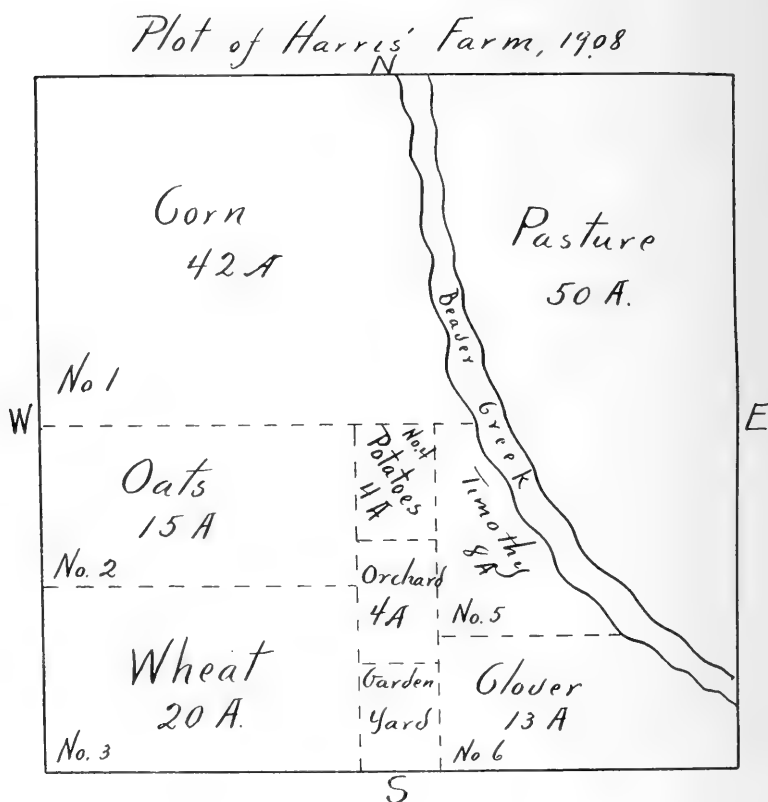 Plot of Harris' Farm, 1908
N
Corn
42 A
No 1
Pasture
50 A.
Beaver Creek
W
E
Oats
15 A
No. 2
No. 4
Potatoes
4 A
Timothy
8 A
No. 5
Orchard
4 A
Wheat
20 A.
No. 3
Garden
Yard
Clover
13 A
No 6
S